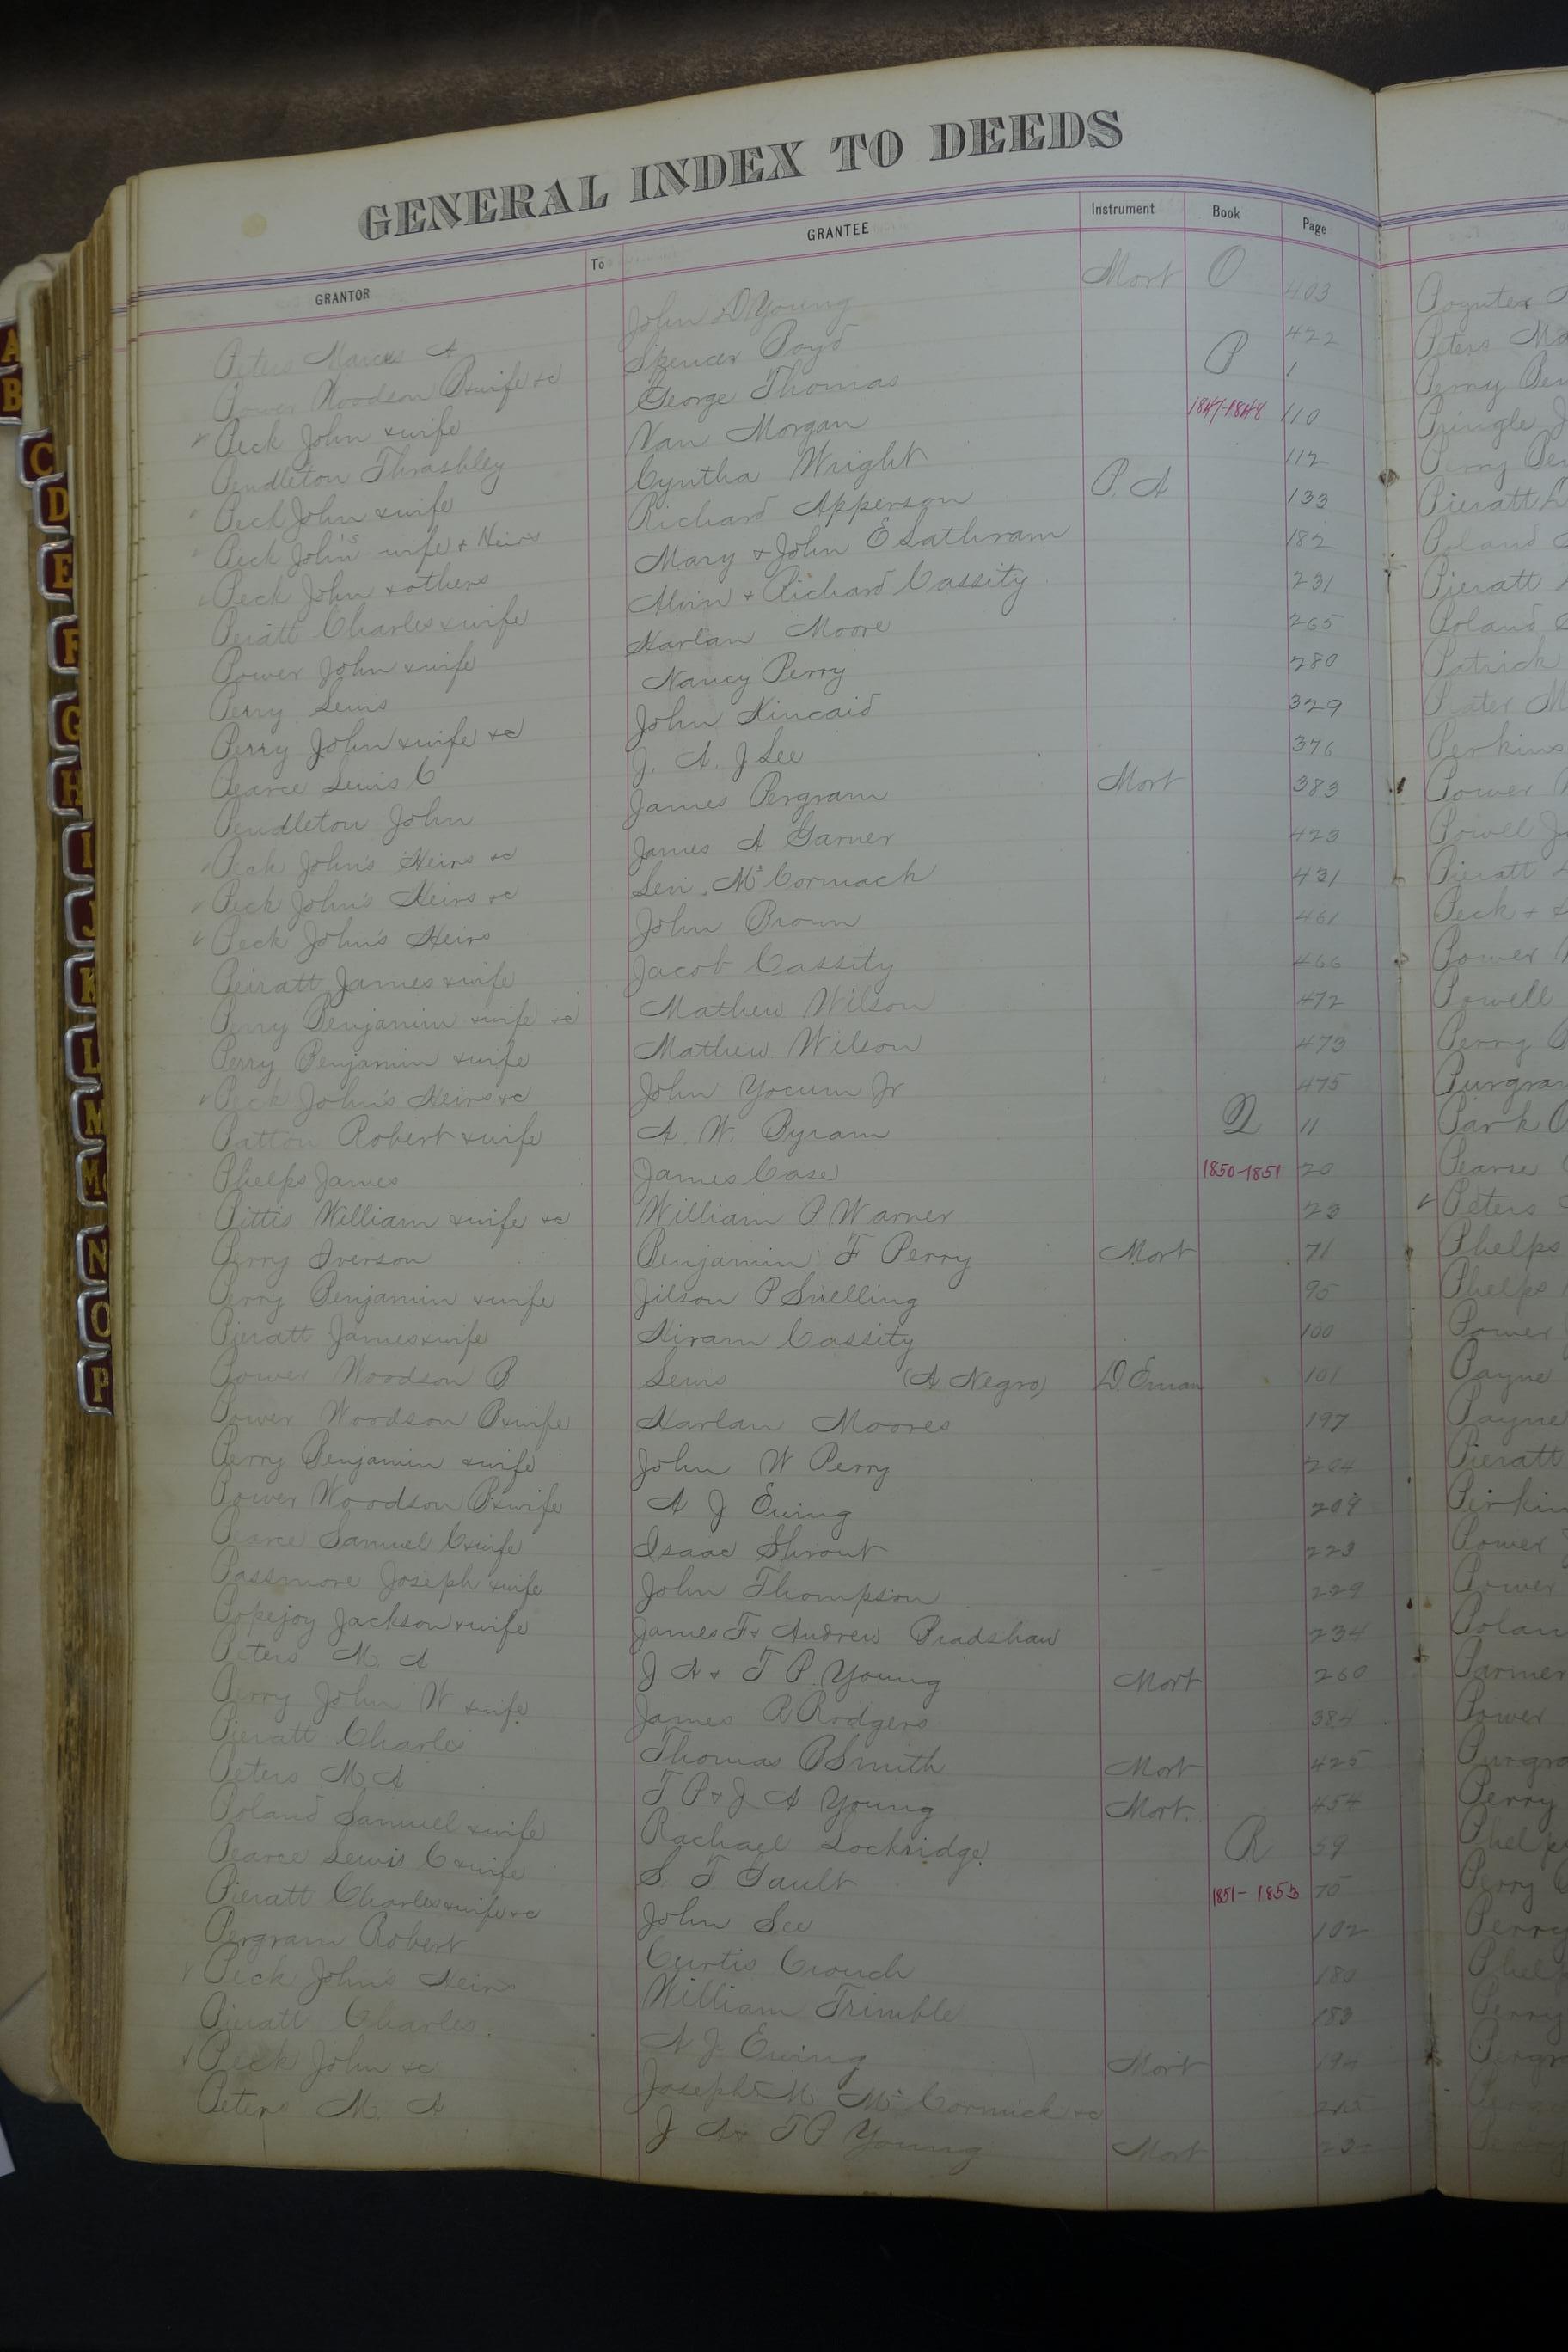 GENERAL INDEX TO DEEDS
GRANTOR To GRANTEE Instrument Book Page
Peters Marcus A John D Young Mort O 403
Power Woodson P & wife &c Spencer Boyd 422
Peck John & wife George Thomas P 1
Pendleton Thrashley Van Morgan 1847-1848 110
Peck John & wife Cyntha Wright 112
Peck John's wife & Heirs Richard Apperson P. A 133
Peck John & others Mary & John E Lathram 182
Peratt Charles & wife Alvin & Richard Cassity 231
Power John & wife Harlan Moore 265
Perry Lewis Nancy Perry 280
Perry John & wife &c John Kincaid 329
Pearce Lewis C J. A. J Lee 376
Pendleton John James Pergram Mort 383
Peck John's Heirs &c James A Garner 423
Peck John's Heirs &c Levi McCormack 431
Peck John's Heirs John Brown 461
Peiratt James & wife Jacob Cassity 466
Perry Benjamin & wife &c Mathew Wilson 472
Perry Benjamin & wife Mathew Wilson 473
Peck John's Heirs &c John Yocum Jr 475
Patton Robert & wife A. W. Byram Q 11
Phelps James James Case 1850-1851 20
Pittis William & wife &c William P Warner 23
Perry Iverson Benjamin F Perry Mort 71
Perry Benjamin & wife Jilson P Snelling 95
Pieratt James & wife Hiram Cassity 100
Power Woodson P Lewis (A Negro) D. Eman 101
Power Woodson P & wife Harlan Moores 197
Perry Benjamin & wife John W Perry 204
Power Woodson P & wife A J Ewing 209
Pearce Samuel C & wife Isaac Shrout 223
Passmore Joseph & wife John Thompson 229
Popejoy Jackson & wife James F & Andrew Bradshaw 234
Peters M. A J A & T P. Young Mort 260
Perry John W & wife James R Rodgers 384
Pieratt Charles Thomas P Smith Mort 425
Peters M. A T P & J A Young Mort. 454
Poland Samuel & wife Rachael Lockridge R 59
Pearce Lewis C & wife S. T Fault 1851-1853 75
Pieratt Charles & wife &c John See 102
Pergram Robert Curtis Crouch 180
Peck John's Heirs William Trimble 183
Pieratt Charles. A J Ewing Mort
Peck John &c Joseph M McCormick &c
Peters M. A J A & T P Young Mort
Poynter
Peters
Perry
Pringle J
Perry
Pieratt
Poland
Pieratt
Poland
Patrick
Prater M
Perkins
Power
Powell J
Pieratt
Peck &
Power
Powell
Perry
Purgram
Park
Pearse
Peters
Phelps
Phelps
Power
Payne
Payne
Pieratt
Perkin
Power
Power
Polan
Parmer
Power
Purgra
Perry
Phelp
Perry
Perry
Phelp
Perry
A
B
C
D
E
F
G
H
I
J
K
L
M
Mc
N
O
P